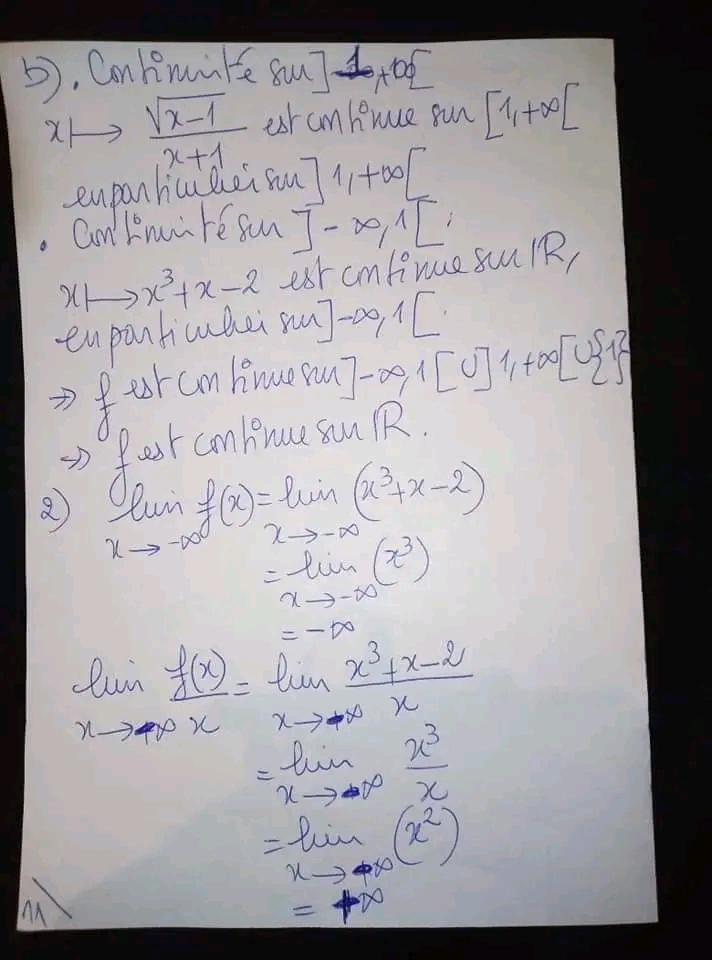 b). Continuité sur ]1,+∞[
x ↦ √(x-1)/(x+1) est continue sur [1,+∞[
en particulier sur ]1,+∞[
• Continuité sur ]-∞,1[.
x ↦ x³+x-2 est continue sur ℝ,
en particulier sur ]-∞,1[.
⇒ f est continue sur ]-∞,1[ ∪ ]1,+∞[ ∪ {1}
⇒ f est continue sur ℝ.
2) lim x→-∞ f(x) = lim x→-∞ (x³+x-2)
= lim x→-∞ (x³)
= -∞
lim x→+∞ f(x)/x = lim x→+∞ (x³+x-2)/x
= lim x→+∞ x³/x
= lim x→+∞ (x²)
= +∞
11